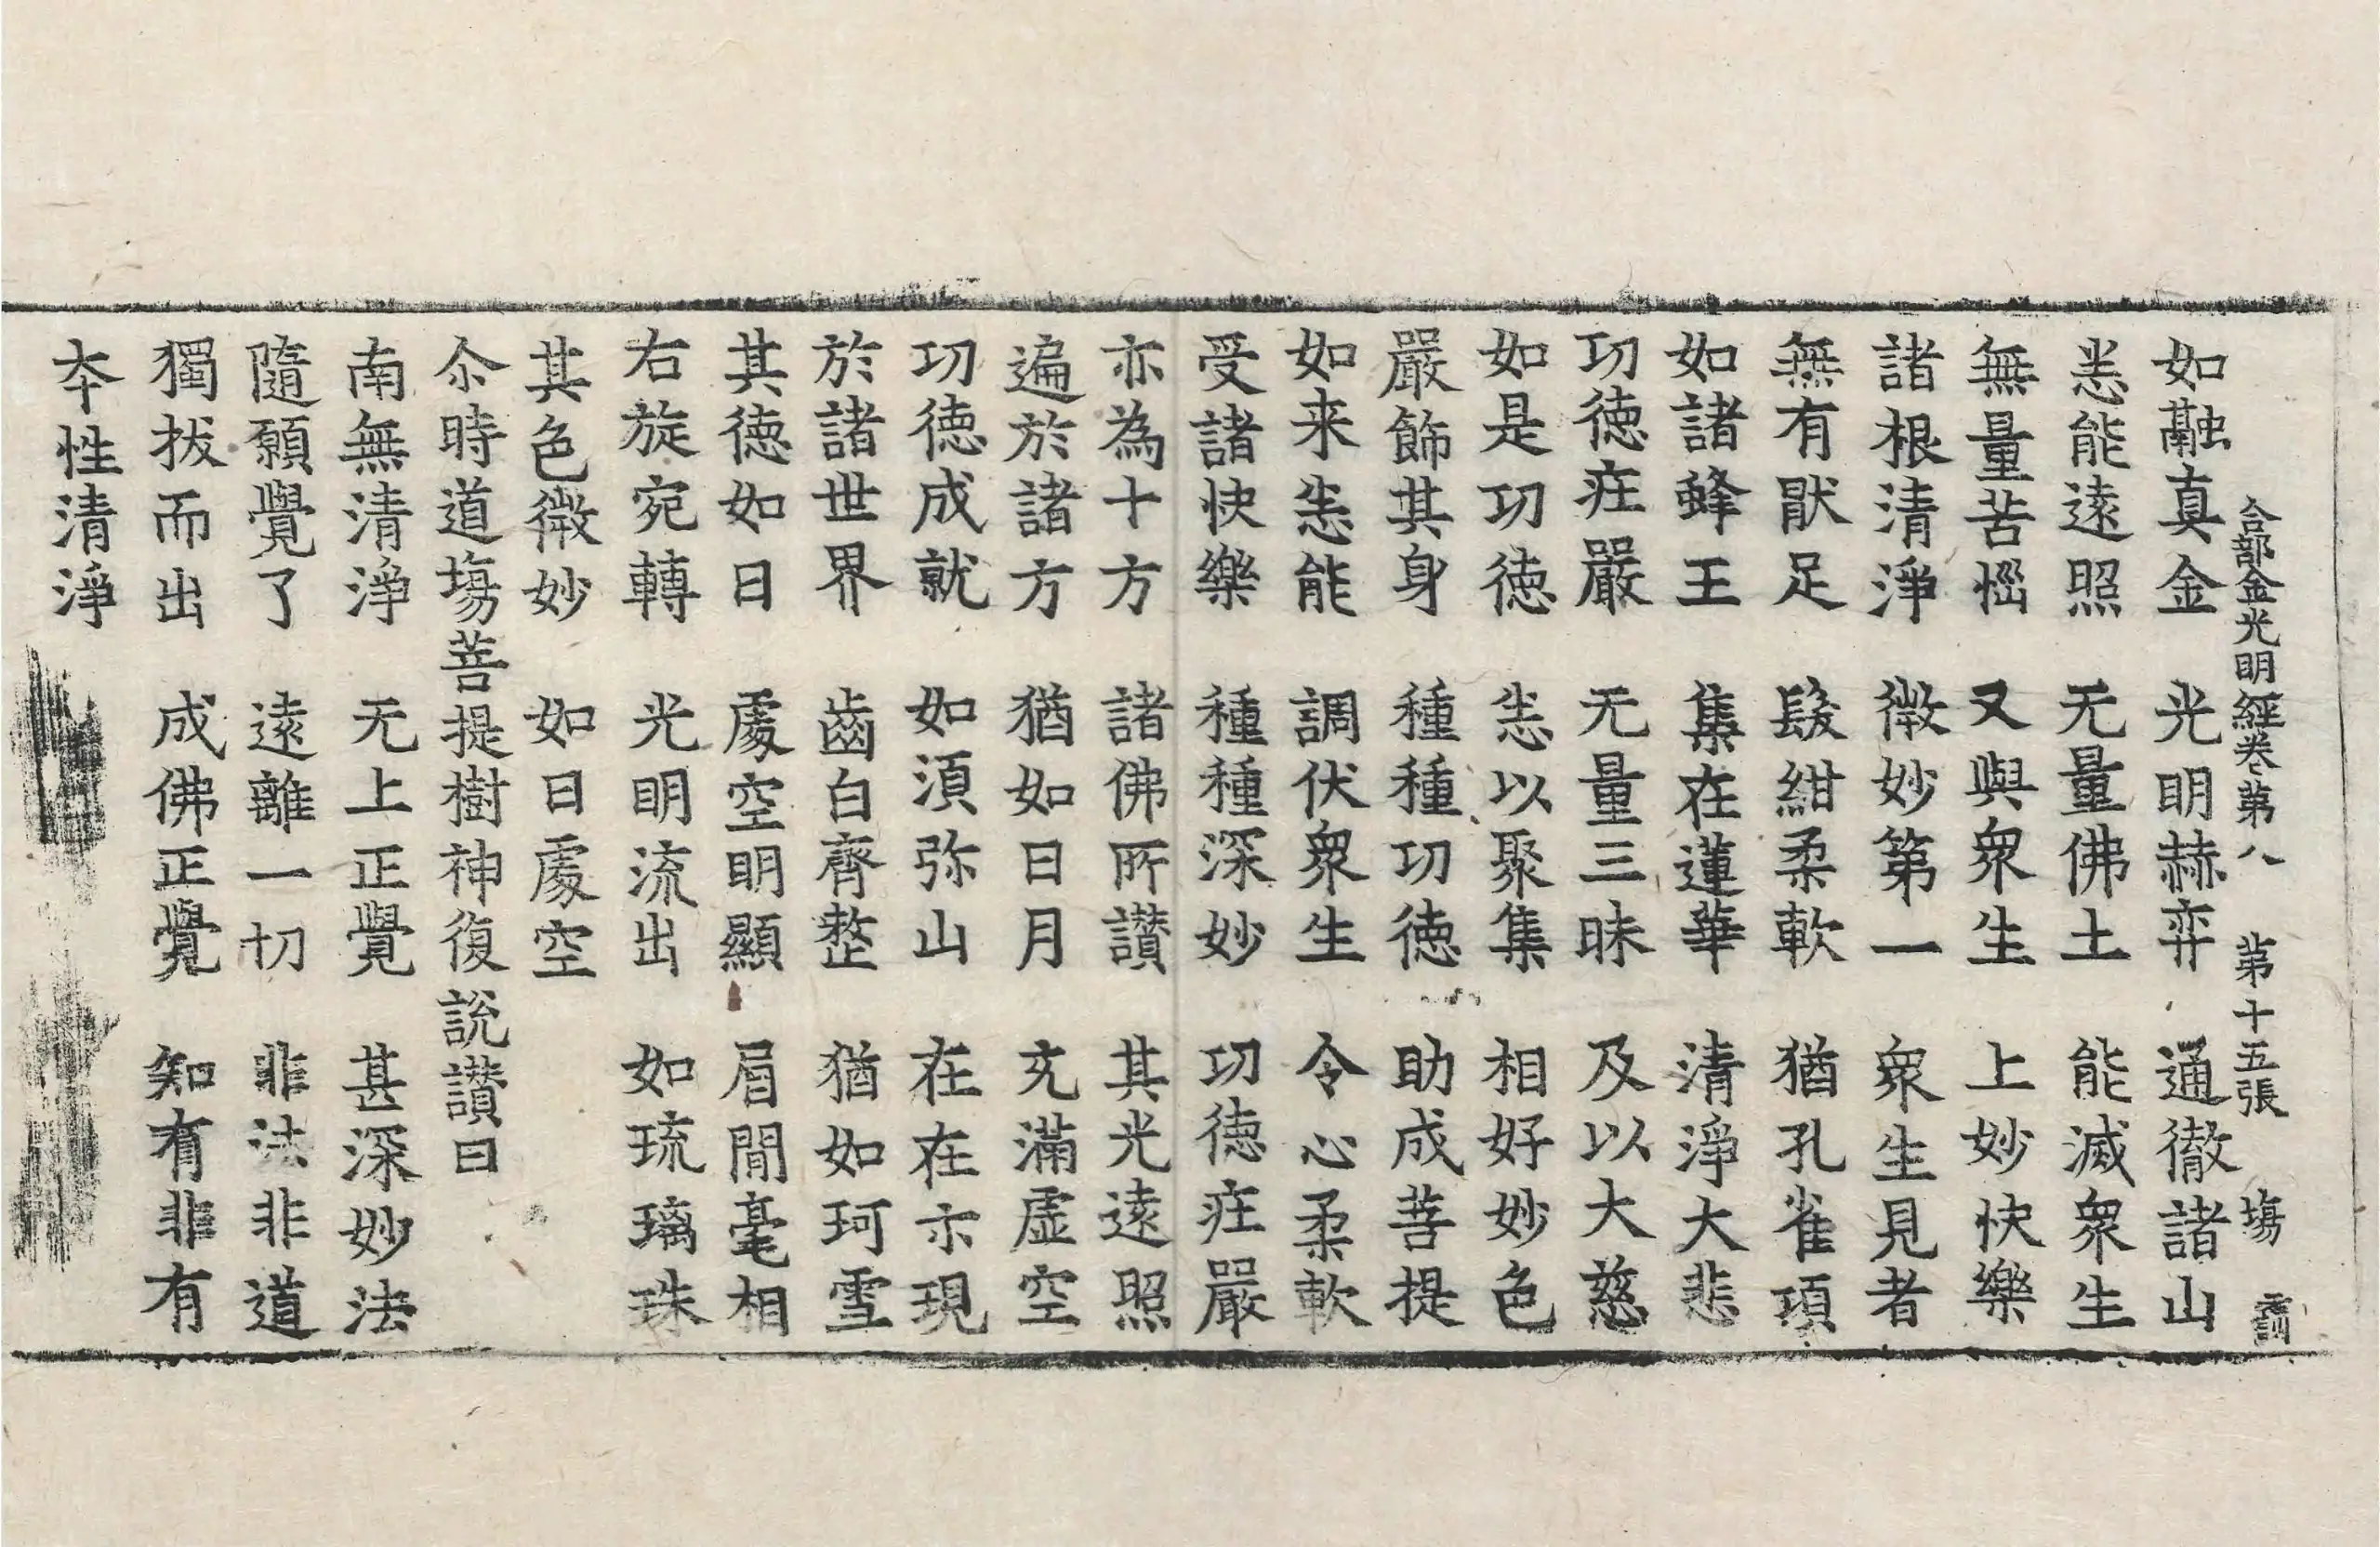 合部金光明經卷第八　第十五張　塲
如融真金　光明赫弈　通徹諸山
悉能遠照　无量佛土　能滅衆生
無量苦惱　又與衆生　上妙快樂
諸根清淨　微妙第一　衆生見者
無有猒足　髮紺柔軟　猶孔雀項
如諸蜂王　集在蓮華　清淨大悲
功德庄嚴　无量三昧　及以大慈
如是功德　悉以聚集　相好妙色
嚴飾其身　種種功德　助成菩提
如来悉能　調伏衆生　令心柔軟
受諸快樂　種種深妙　功德庄嚴
亦為十方　諸佛所讃　其光遠照
遍於諸方　猶如日月　充滿虛空
功德成就　如須弥山　在在示現
於諸世界　齒白齊整　猶如珂雪
其德如日　處空明顯　眉間毫相
右旋宛轉　光明流出　如琉璃珠
其色微妙　如日處空
尒時道塲菩提樹神復說讃曰
南無清淨　无上正覺　甚深妙法
隨願覺了　遠離一切　非法非道
獨拔而出　成佛正覺　知有非有
本性清淨